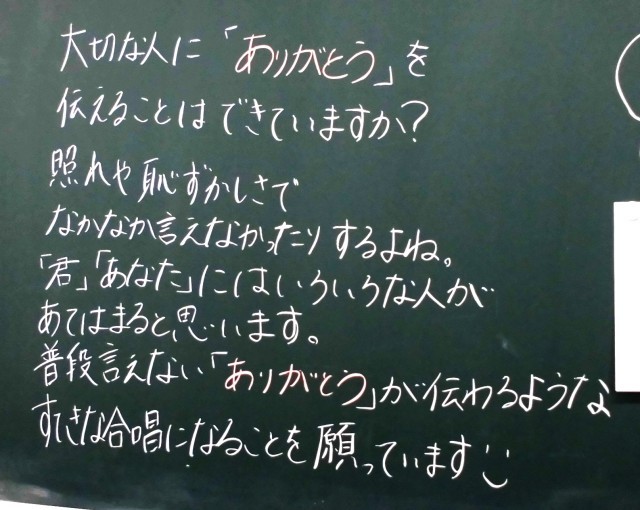 大切な人に「ありがとう」を
伝えることはできていますか?
照れや恥ずかしさで
なかなか言えなかったりするよね。
「君」「あなた」にはいろいろな人が
あてはまると思います。
普段言えない「ありがとう」が伝わるような
すてきな合唱になることを願っています